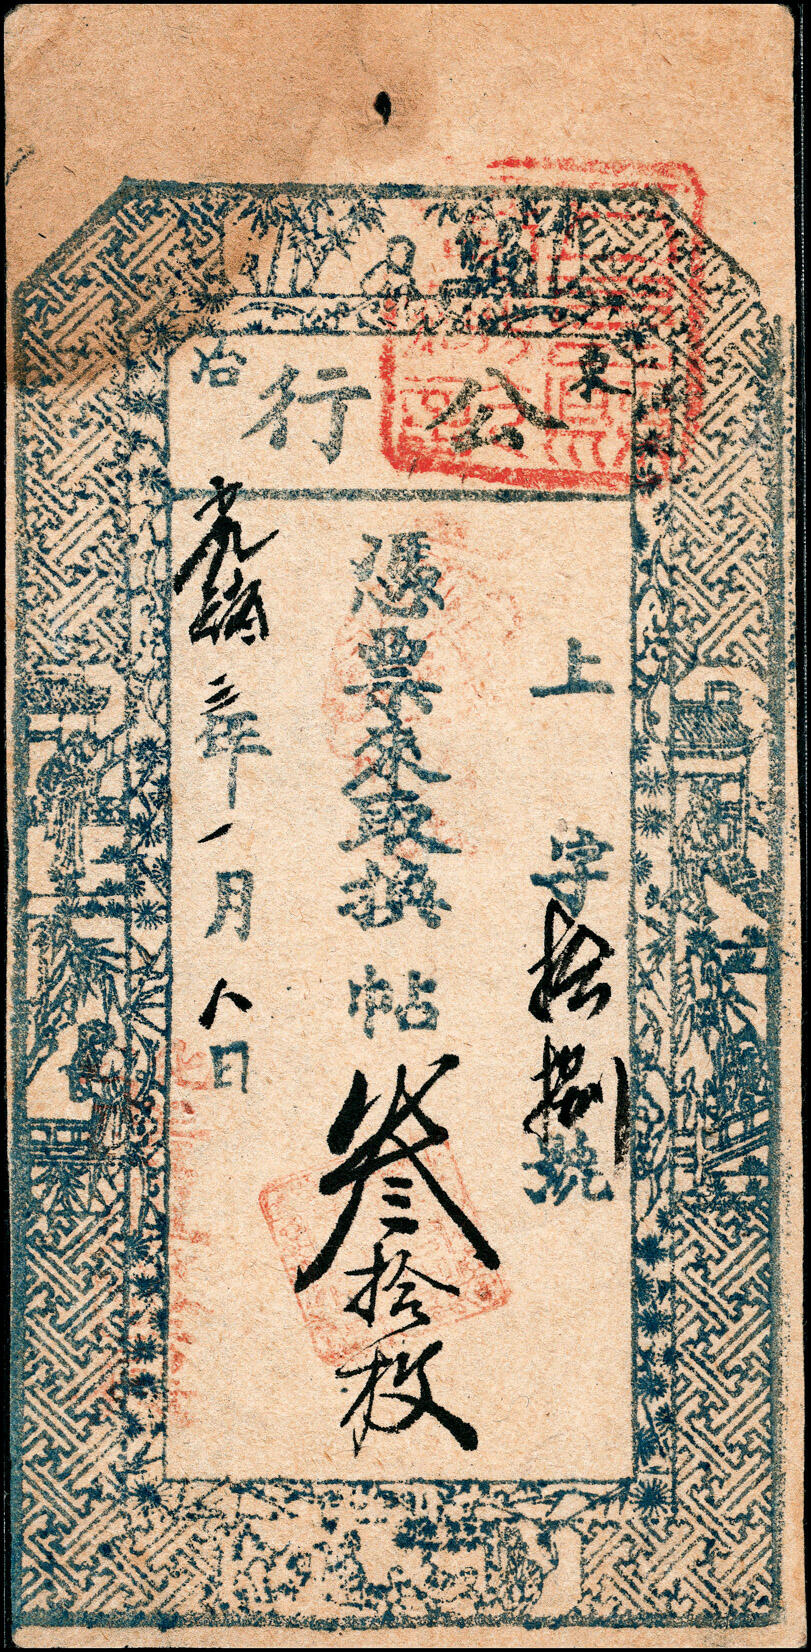 東公行冶
上字拾捌號
憑票來取換帖叁拾枚
三年一月八日